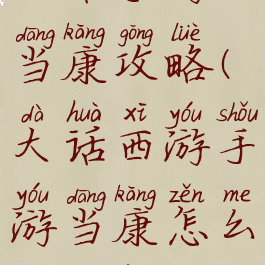 dāng kāng gōng lüè
当康攻略(
dà huà xī yóu shǒu
大话西游手
yóu dāng kāng zěn me
游当康怎么